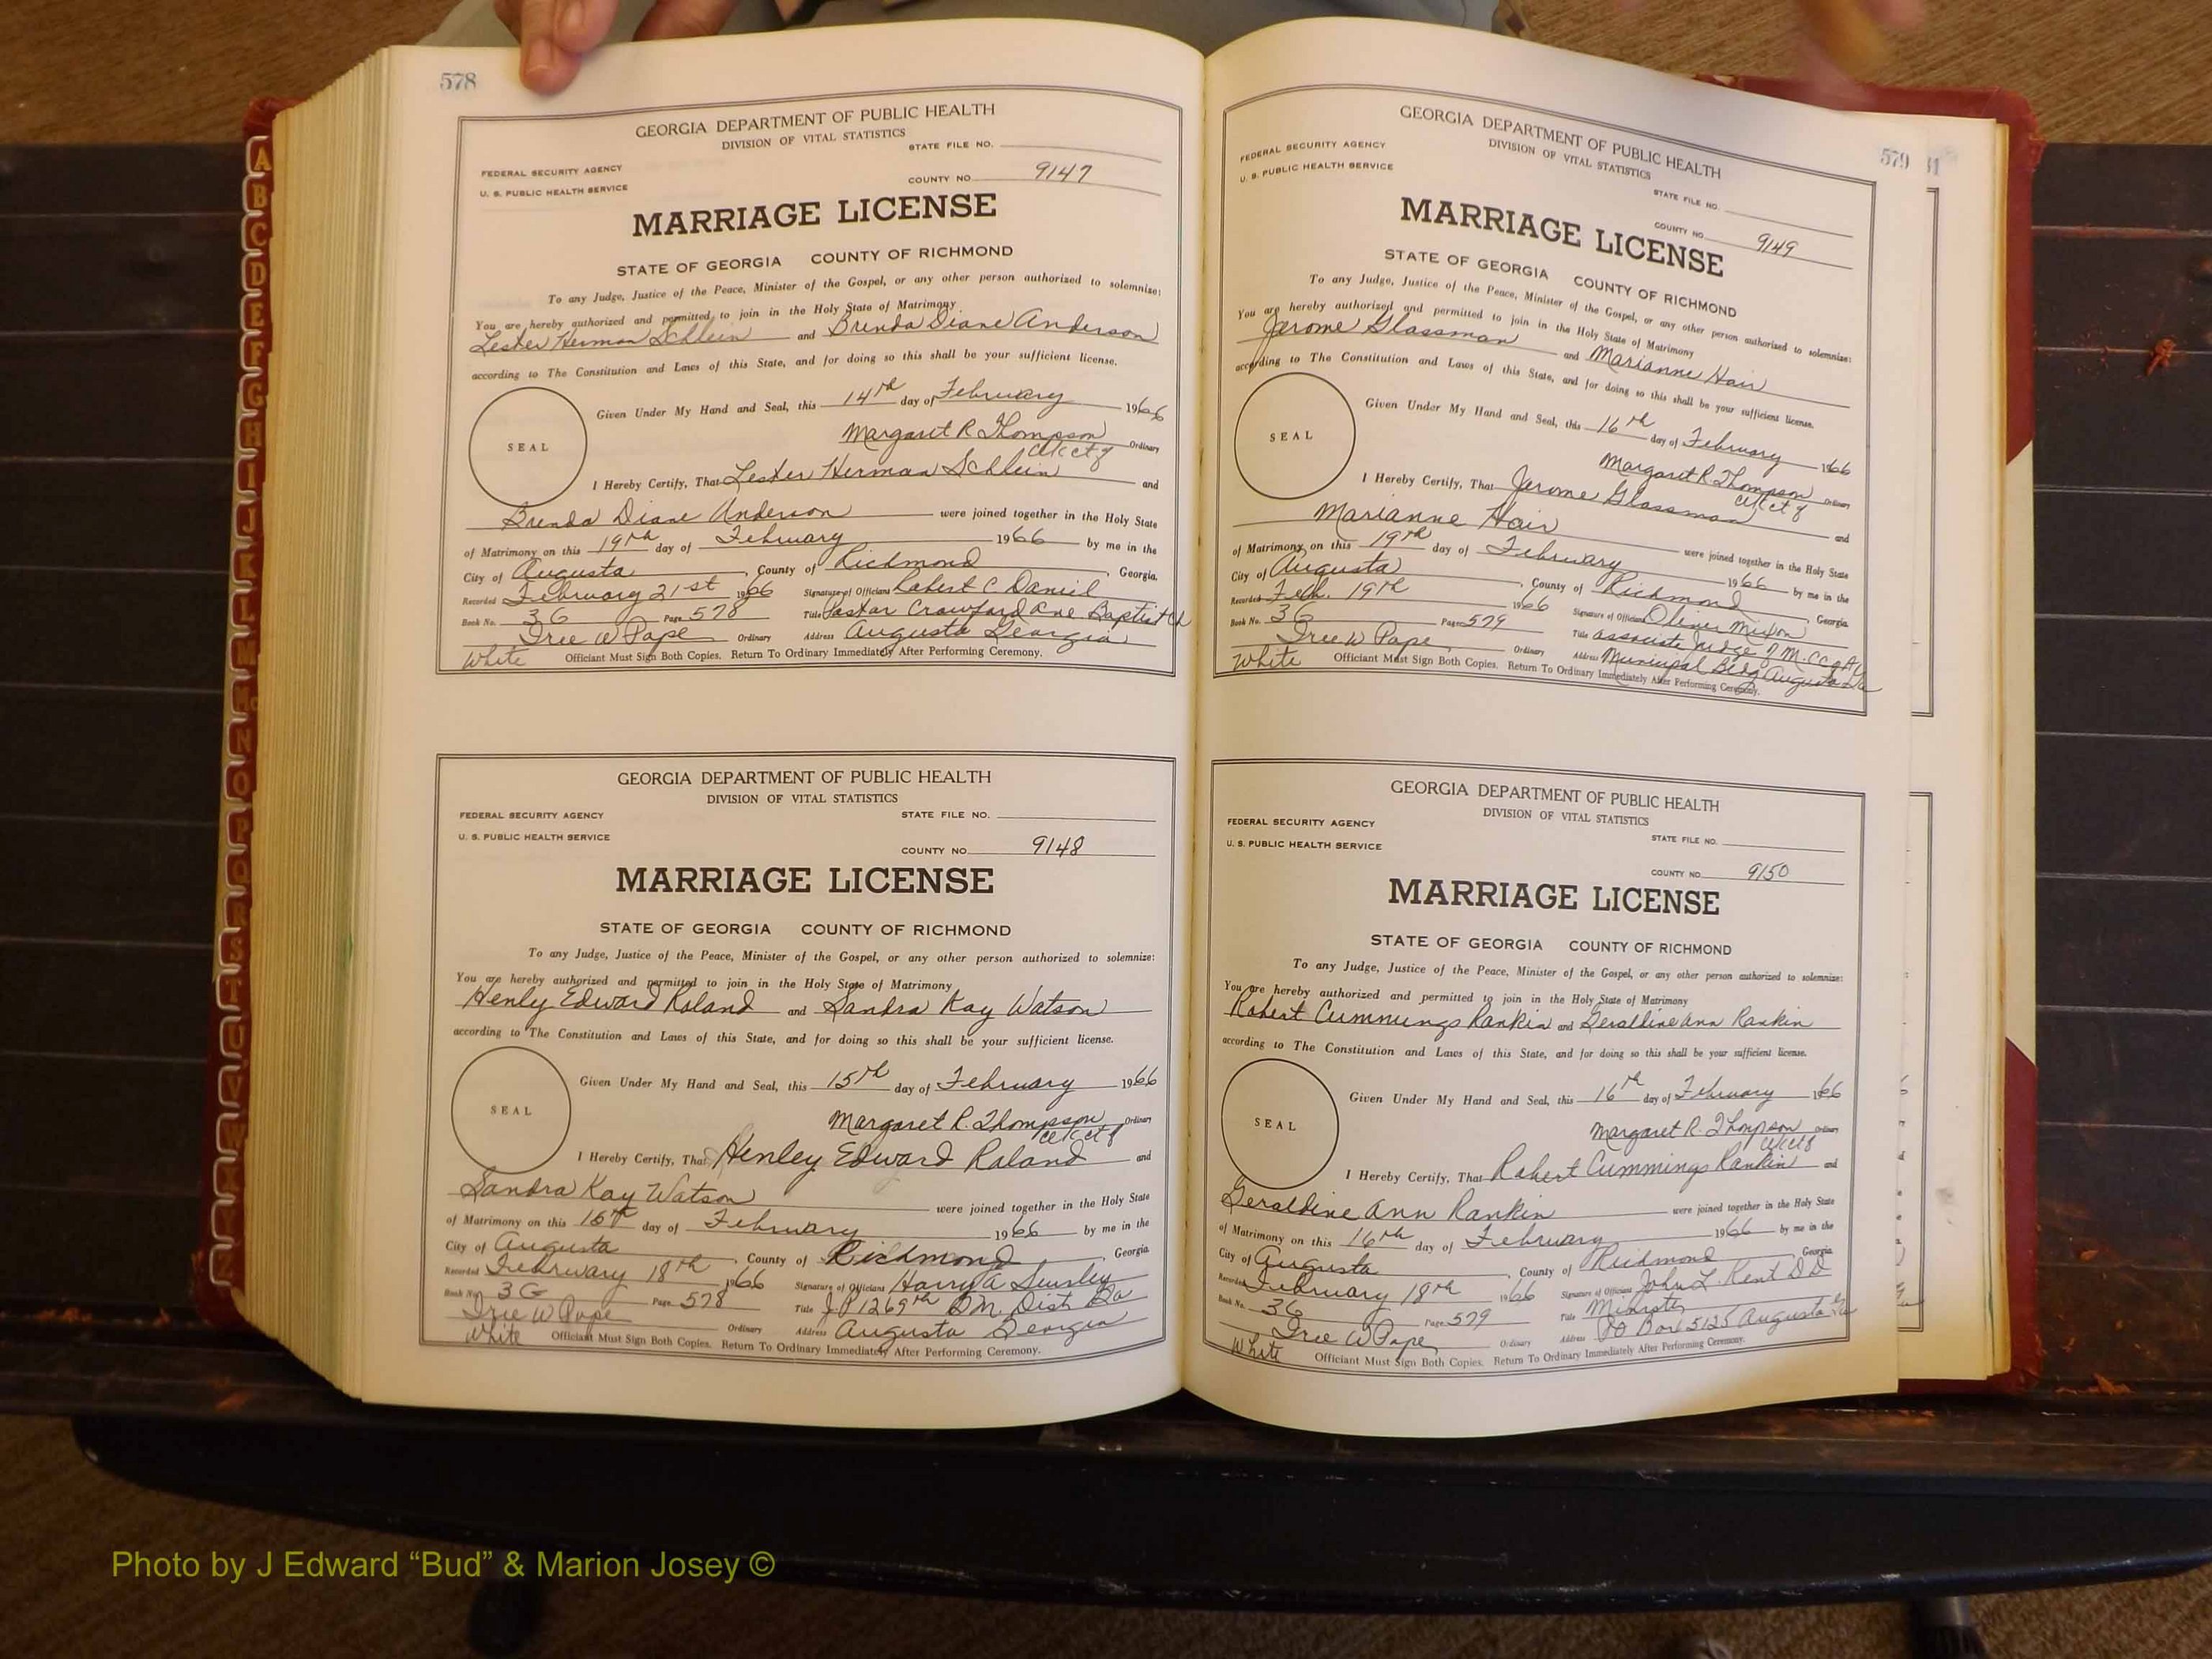 578
GEORGIA DEPARTMENT OF PUBLIC HEALTH
DIVISION OF VITAL STATISTICS
STATE FILE NO.
FEDERAL SECURITY AGENCY
U. S. PUBLIC HEALTH SERVICE
COUNTY NO. 9147
MARRIAGE LICENSE
STATE OF GEORGIA COUNTY OF RICHMOND
To any Judge, Justice of the Peace, Minister of the Gospel, or any other person authorized to solemnize:
You are hereby authorized and permitted to join in the Holy State of Matrimony
Lester Herman Schlein and Brenda Diane Anderson
according to The Constitution and Laws of this State, and for doing so this shall be your sufficient license.
SEAL
Given Under My Hand and Seal, this 14th day of February 1966
Margaret R Thompson Ordinary
Clk ct of
I Hereby Certify, That Lester Herman Schlein and
Brenda Diane Anderson were joined together in the Holy State
of Matrimony on this 19th day of February 1966 by me in the
City of Augusta, County of Richmond, Georgia.
Recorded February 21st 1966 Signature of Officiant Robert C Daniel
Book No. 3G Page 578 Title Pastor Crawford Ave Baptist Ch
Iree W Pope Ordinary Address Augusta Georgia
White Officiant Must Sign Both Copies. Return To Ordinary Immediately After Performing Ceremony.
GEORGIA DEPARTMENT OF PUBLIC HEALTH
DIVISION OF VITAL STATISTICS
FEDERAL SECURITY AGENCY STATE FILE NO.
U. S. PUBLIC HEALTH SERVICE
COUNTY NO. 9148
MARRIAGE LICENSE
STATE OF GEORGIA COUNTY OF RICHMOND
To any Judge, Justice of the Peace, Minister of the Gospel, or any other person authorized to solemnize:
You are hereby authorized and permitted to join in the Holy State of Matrimony
Henley Edward Roland and Sandra Kay Watson
according to The Constitution and Laws of this State, and for doing so this shall be your sufficient license.
SEAL
Given Under My Hand and Seal, this 15th day of February 1966
Margaret R. Thompson Ordinary
Clk ct of
I Hereby Certify, That Henley Edward Roland and
Sandra Kay Watson were joined together in the Holy State
of Matrimony on this 15th day of February 1966 by me in the
City of Augusta, County of Richmond, Georgia
Recorded February 18th 1966 Signature of Officiant Harry A
Book No. 3G Page 578 Title JP 1269th GM. Dist Ga
Iree W Pope Ordinary Address Augusta Georgia
White Officiant Must Sign Both Copies. Return To Ordinary Immediately After Performing Ceremony.
579
31
GEORGIA DEPARTMENT OF PUBLIC HEALTH
DIVISION OF VITAL STATISTICS
FEDERAL SECURITY AGENCY
U. S. PUBLIC HEALTH SERVICE
STATE FILE NO.
COUNTY NO. 9149
MARRIAGE LICENSE
STATE OF GEORGIA COUNTY OF RICHMOND
To any Judge, Justice of the Peace, Minister of the Gospel, or any other person authorized to solemnize:
You are hereby authorized and permitted to join in the Holy State of Matrimony
Jerome Glassman and Marianne Hair
according to The Constitution and Laws of this State, and for doing so this shall be your sufficient license.
SEAL
Given Under My Hand and Seal, this 16th day of February 1966
Margaret R. Thompson Ordinary
Clk ct of
I Hereby Certify, That Jerome Glassman and
Marianne Hair were joined together in the Holy State
of Matrimony on this 19th day of February 1966 by me in the
City of Augusta, County of Richmond, Georgia
Recorded Feb. 19th 1966 Signature of Officiant Oliver Mixon
Book No. 3G Page 579 Title Associate Judge of M.C.C of
Iree W Pope Ordinary Address Municipal Bldg Augusta Ga
White Officiant Must Sign Both Copies. Return To Ordinary Immediately After Performing Ceremony.
GEORGIA DEPARTMENT OF PUBLIC HEALTH
DIVISION OF VITAL STATISTICS
FEDERAL SECURITY AGENCY STATE FILE NO.
U. S. PUBLIC HEALTH SERVICE
COUNTY NO. 9150
MARRIAGE LICENSE
STATE OF GEORGIA COUNTY OF RICHMOND
To any Judge, Justice of the Peace, Minister of the Gospel, or any other person authorized to solemnize:
You are hereby authorized and permitted to join in the Holy State of Matrimony
Robert Cummings Rankin and Geraldine Ann Rankin
according to The Constitution and Laws of this State, and for doing so this shall be your sufficient license.
SEAL
Given Under My Hand and Seal, this 16th day of February 1966
Margaret R. Thompson Ordinary
Clk ct of
I Hereby Certify, That Robert Cummings Rankin and
Geraldine Ann Rankin were joined together in the Holy State
of Matrimony on this 16th day of February 1966 by me in the
City of Augusta, County of Richmond, Georgia
Recorded February 18th 1966 Signature of Officiant John L. Kent DD
Book No. 3G Page 579 Title Minister
Iree W Pope Ordinary Address PO Box 5125 Augusta Ga
White Officiant Must Sign Both Copies. Return To Ordinary Immediately After Performing Ceremony.
A
B
C
D
E
F
G
H
I
J
K
L
M
Mc
N
O
P
Q
R
S
T
U
V
W
X
Y
Z
Photo by J Edward “Bud” & Marion Josey ©